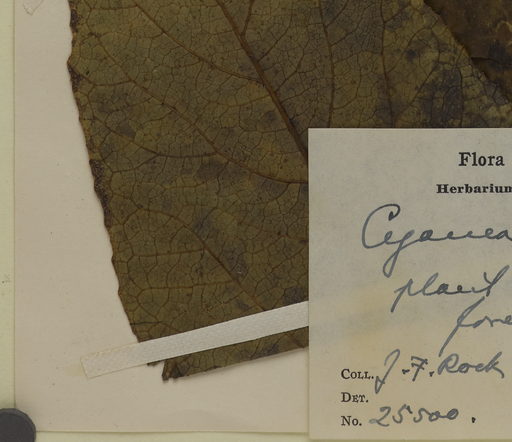 Flora
Herbarium
Cyanea
plant
fore
COLL. J. F. Rock
DET.
No. 25500.